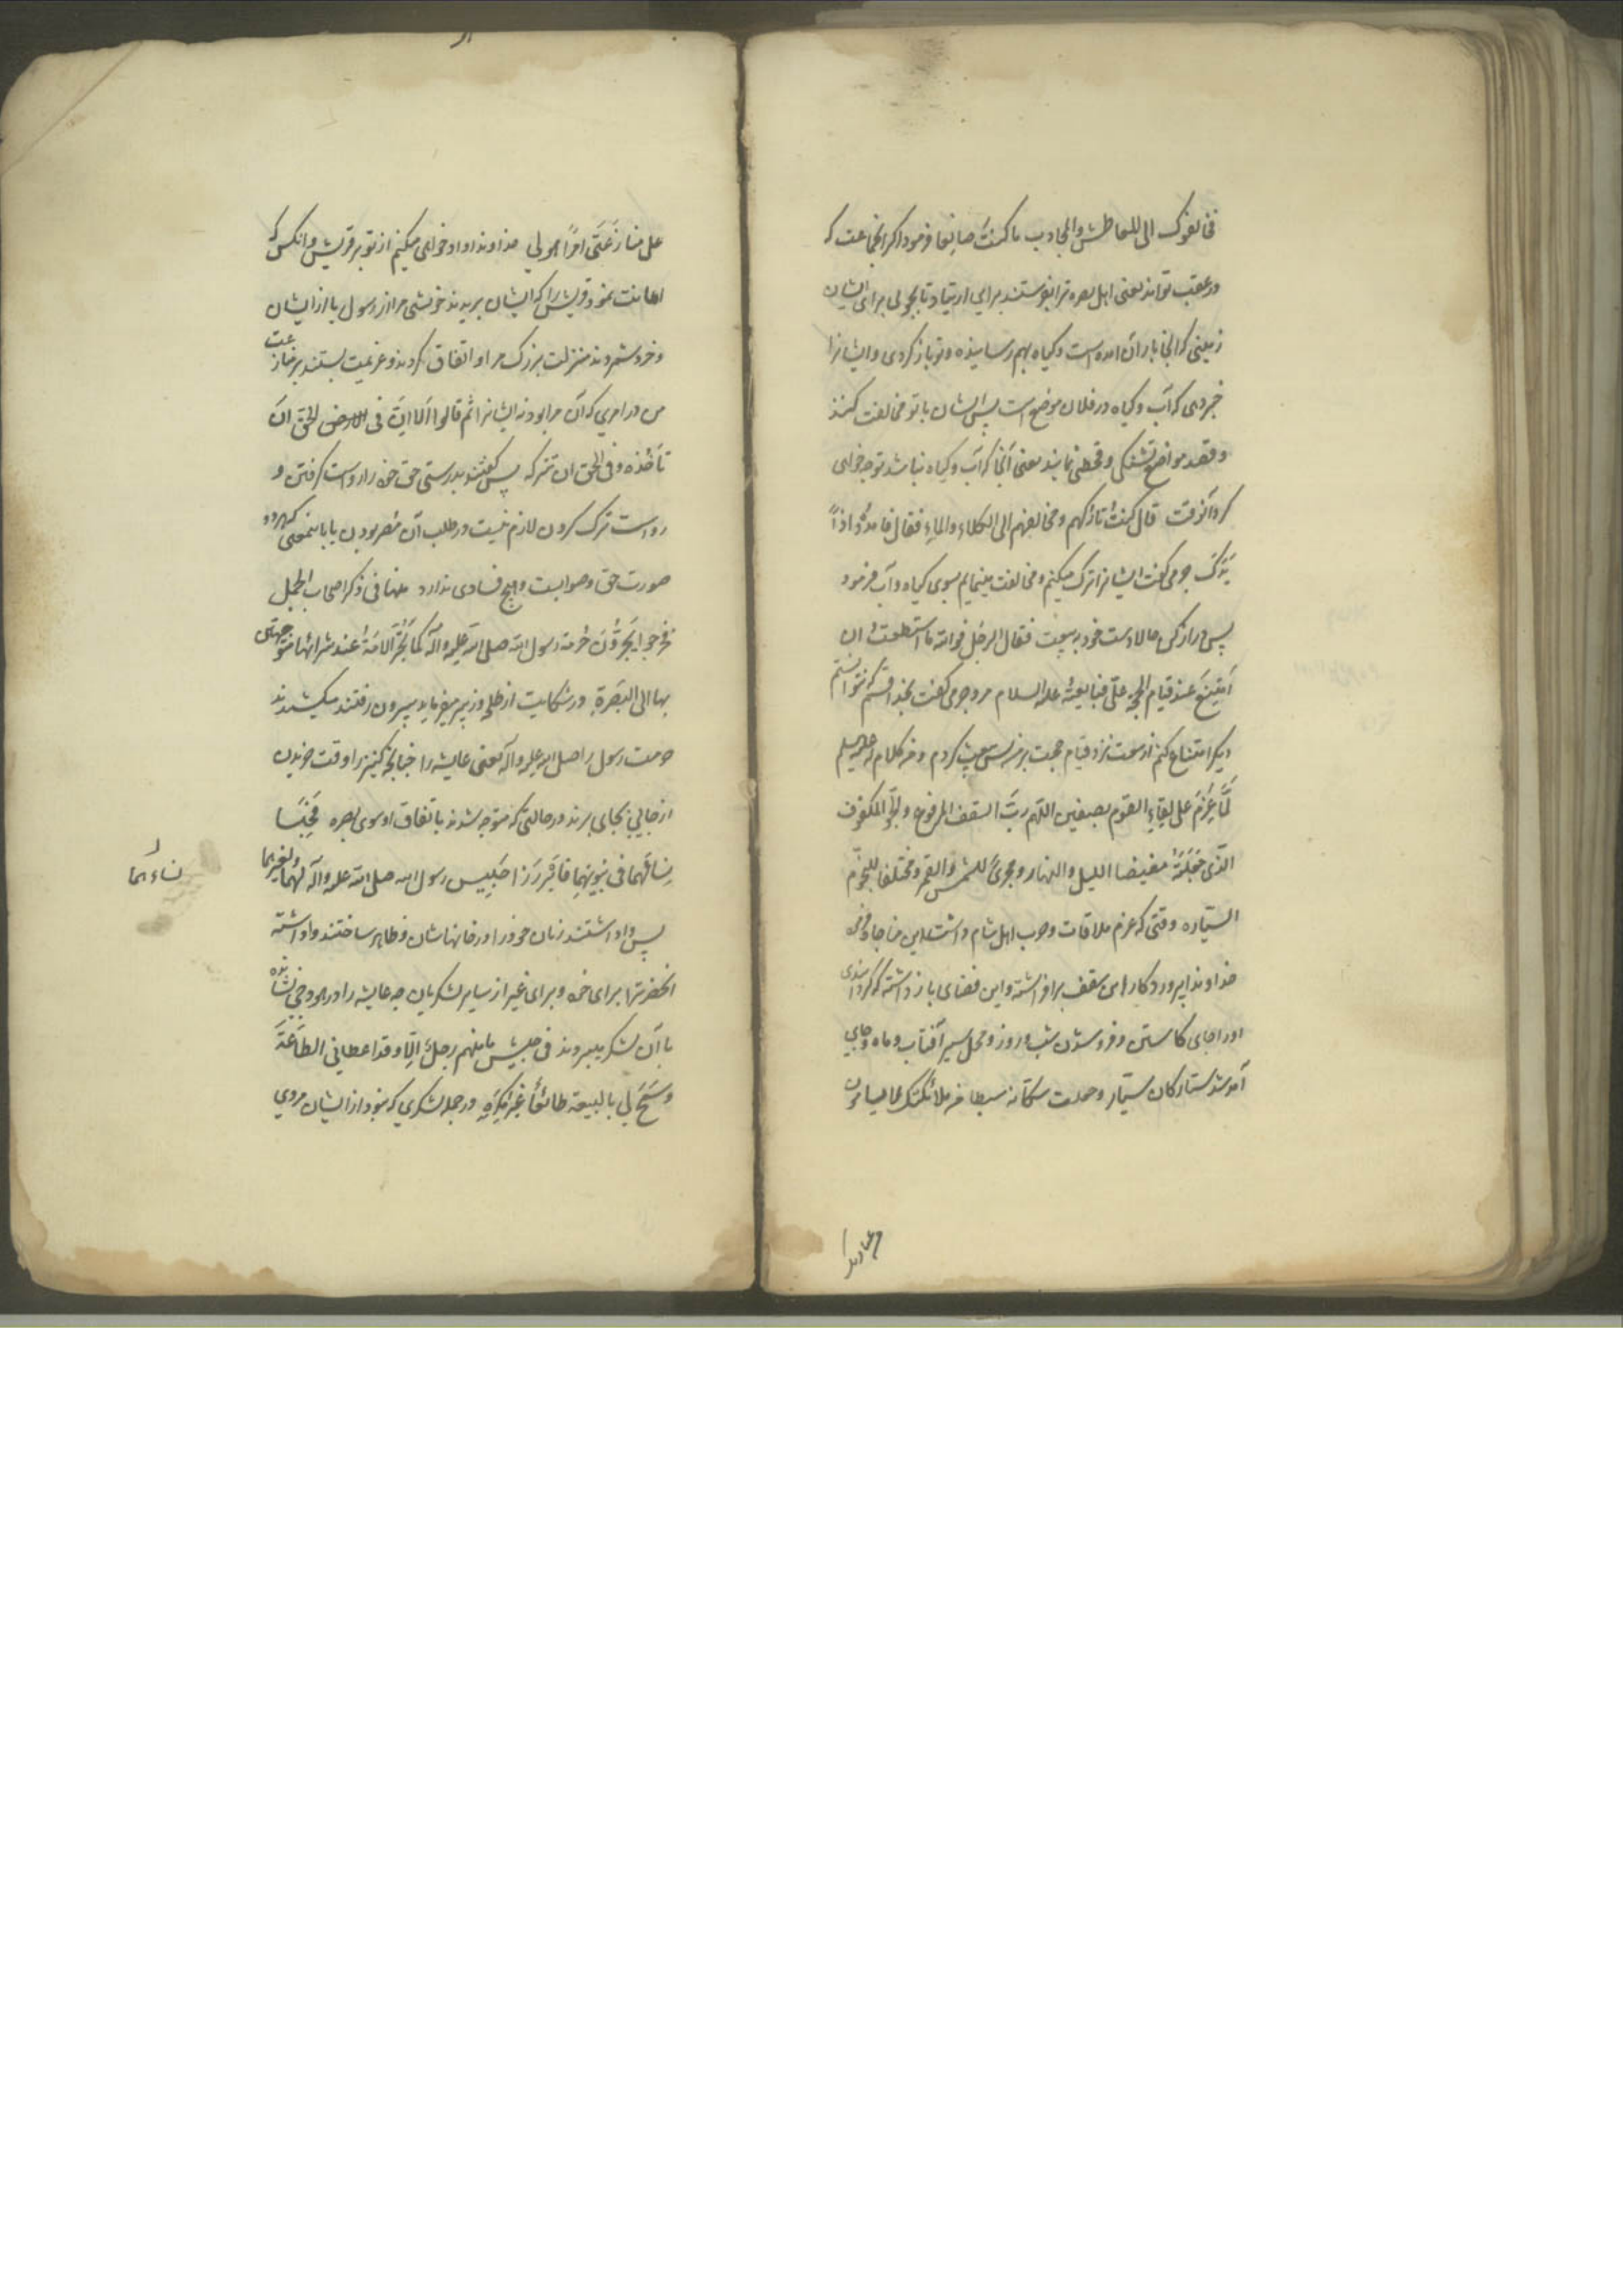 فخالفوک الی المعاطش والمجادب ما کنت صانعا فرمود اکر انجماعت که
در عقب تواند یعنی اهل بصره ترا بفرستند برای ارتیاد تا بجویی برای ایشان
زمینی که انجا باران امده است وکیاه بهم رسانیده وتو باز کردی وایشانرا
خبر دهی که آب وکیاه در فلان موضع است پس ایشان با تو مخالفت کنند
وقصد مواضع تشنکی وقحطی نمایند یعنی آنجا که آب وکیاه نباشد تو چه خواهی
کرد آنوقت قال کنت تارکهم ومخالفهم الی الکلاء والماء فقال فامدد اذاً
یدک جرمی کفت ایشانرا ترک میکنم ومخالفت مینمایم بسوی کیاه وآب فرمود
پس دراز کن حالا دست خود به بیعت فقال الرجل فوالله ما استطعت ان
امتنع عند قیام الحجة علیّ فبایعته علیه السلام مرد جرمی کفت بخدا قسم که نتوانستم
دیکر امتناع کنم از بیعت نزد قیام حجت بر من پس بیعت کردم ومن کلام له علیه السلم
لمّا عزم علی لقاء القوم بصفین اللهم ربّ السقف المرفوع والجوّ المکفوف
الّذی جعلته مغیضا اللیل والنهار ومجریً للشمس والقمر ومختلفا للنجوم
السیّاره وقتی که عزم ملاقات وحرب اهل شام داشت این مناجات
خداوندا پروردکار این سقف برافراشته واین فضای باز داشته که کردانیدی
او را جای کاستن وفرو شدن شب وروز ومحل سیر آفتاب وماه وجای
آمد شد ستارکان سیّار وجعلت سکّانه سبطا من ملائکتک لا یسامون
من عبادتک
علی منازعتی امراً هو لی خداوندا داد خواهی میکنم از تو بر قریش وانکس که
اعانت نمود قریش را که ایشان بریدند خویشی مرا از رسول یا از ایشان
وخرد شمردند منزلت بزرک مرا واتفاق کردند وعزیمت بستند بر منازعت
من در امری که آن مرا بود نه ایشانرا ثم قالوا الا انّ فی الحق ان
تأخذه وفی الحق ان تترکه پس کفتند بدرستی حق خود را رواست کرفتن و
رواست ترک کردن لازم نیست در طلب آن مصر بودن یا باینمعنی که هر دو
صورت حق وصوابست وهیچ فسادی ندارد منها فی ذکر اصحاب الجمل
فخرجوا یجرّون حرمة رسول الله صلی الله علیه واله کما تجرّ الامة عند شرائها متوجهین
بها الی البصرة در شکایت از طلحه وزبیر میفرماید بیرون رفتند میکشیدند
حرمت رسول را صلی الله علیه وآله یعنی عایشه را چنانچه کنیز را وقت خریدن
از جایی بجای برند در حالتی که متوجه شدند باتفاق او سوی بصره فحبسا
نسائهما فی بیوتهما فابرزا حبیس رسول الله صلی الله علیه وآله لهما ولغیرهما
نساءهما
پس واداشتند زنان خود را در خانهاشان وظاهر ساختند واداشته
انحضرترا برای خود وبرای غیر از سایر لشکریان چه عایشه را در هودجی نشانده
با آن لشکر میبردند فی جیش ما منهم رجل الّا وقد اعطانی الطاعة
وسمح لی بالبیعة طائعاً غیر مکره در جمله لشکری که نبود از ایشان مردی